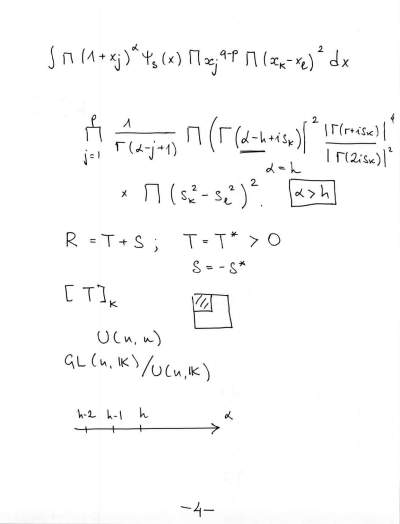 ∫ Π (1+xⱼ)^α Ψₛ(x) Π xⱼ^(q-p) Π (xₖ-xₑ)² dx
p Π j=1 1/Γ(α-j+1) Π |Γ(α-h+isₖ)|² |Γ(r+isₖ)|⁴/|Γ(2isₖ)|²
α=h
× Π (sₖ²-sₑ²)². α>h
R = T+S ; T=T* > 0
S=-S*
[T]ₖ
U(n,n)
GL(n,𝕂)/U(n,𝕂)
h-2 h-1 h α
-4-